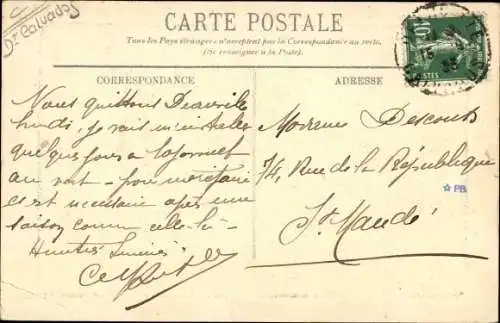 Dt Calvados
CARTE POSTALE
Tous les Pays étrangers n'acceptent pas la Correspondance au recto.
(Se renseigner à la Poste).
CORRESPONDANCE
ADRESSE
10
POSTES
Nous quittons Deauville
lundi, je vais m'installer
quelques jours à
au vert - pour
est nécessaire après une
saison comme celle-là -
Madame Descours
74, Rue de la République
St Mandé
PB